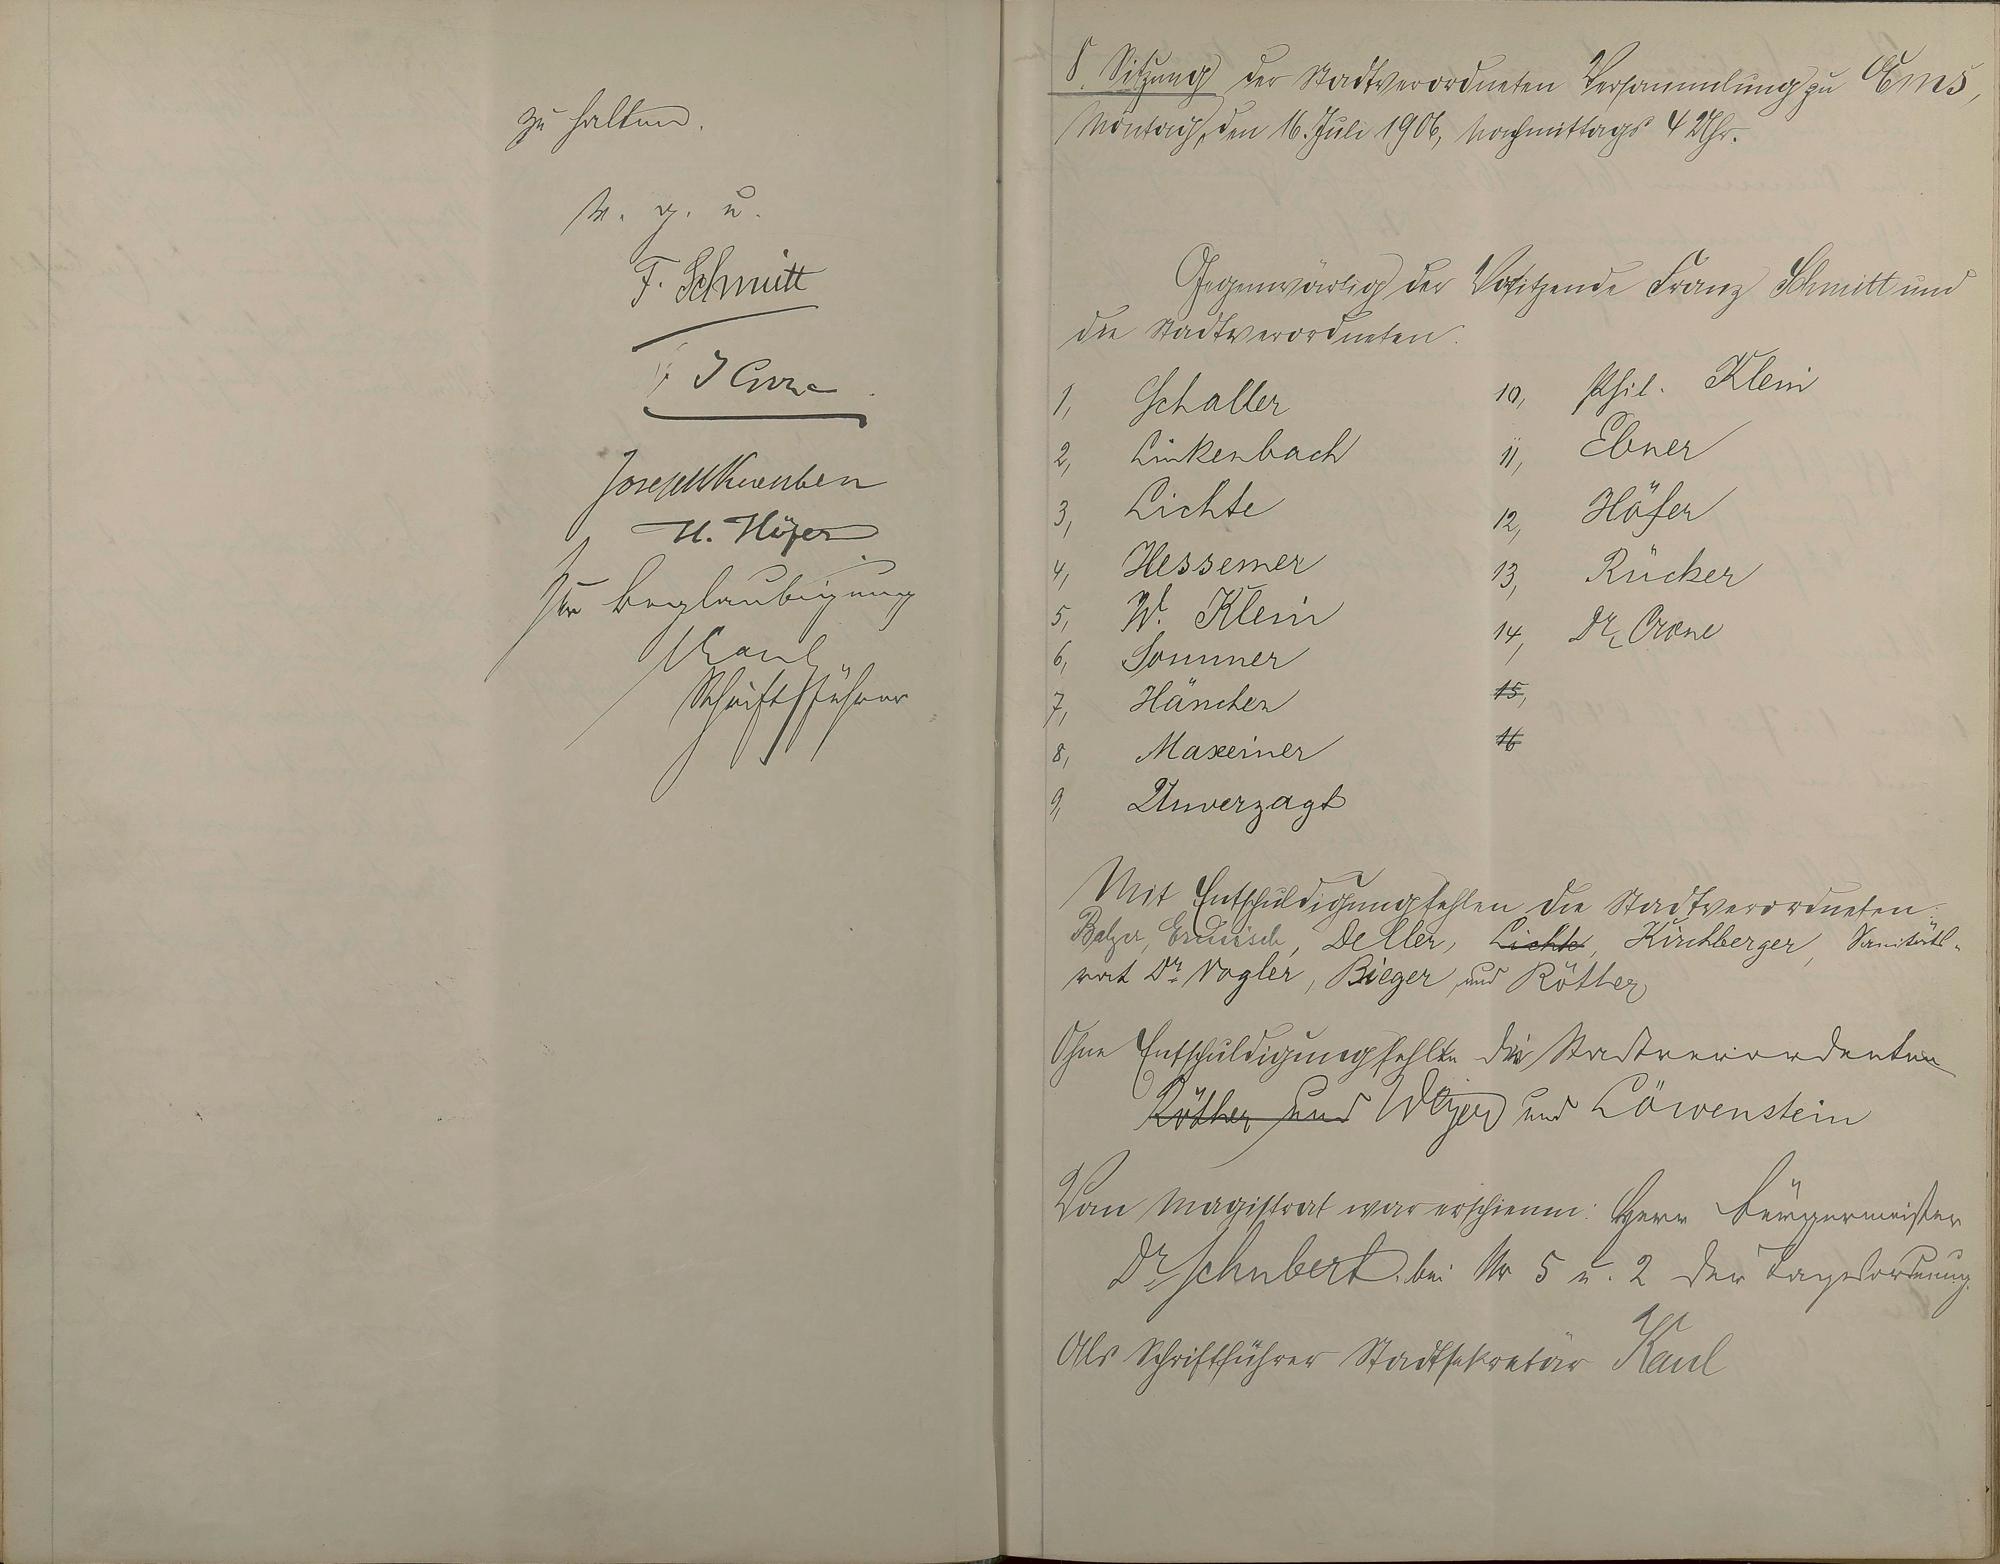 zu halten.
v. g. u.
F. Schmitt
Joseph
H. Höfer
Zur Beglaubigung
Kaul
Schriftführer
8. Sitzung der Stadtverordneten Versammlung zu Ems,
Montag, den 16. Juli 1906, Nachmittags 4 Uhr.
Gegenwärtig der Vorsitzende Franz Schmitt und
die Stadtverordneten.
1, Schaller
2, Linkenbach
3, Lichte
4, Hessemer
5, W. Klein
6, Sommer
7, Hänchen
8, Maxeiner
9, Unverzagt
10, Phil. Klein
11, Ebner
12, Höfer
13, Rücker
14, Dr. Crone
15,
16
Mit Entschuldigung fehlen die Stadtverordneten:
Balzer, Deller, Lichte, Kirchberger, Sanitäts-
rat Dr. Vogler, Bieger und Röther
Ohne Entschuldigung fehlten die Stadtverordenten
Röther und Meyer und Löwenstein
Vom Magistrat war erschienen: Herr Bürgermeister
Dr. Schubert. bei Nr 5 u. 2 der Tagesordnung.
Als Schriftführer Stadtsekretär Kaul